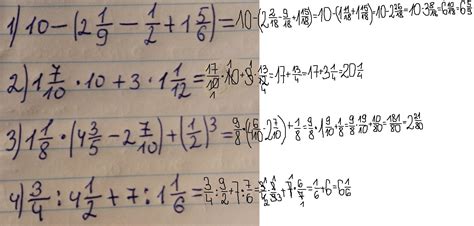 1) 10 - (2 1/9 - 1/2 + 1 5/6) = 10 - (2 2/18 - 9/18 + 1 15/18) = 10 - (1 11/18 + 1 15/18) = 10 - 2 26/18 = 10 - 3 8/18 = 6 10/18 = 6 5/9
2) 1 7/10 · 10 + 3 · 1 1/12 = 17/10 · 10 + 3 · 13/12 = 17 + 13/4 = 17 + 3 1/4 = 20 1/4
3) 1 1/8 · (4 3/5 - 2 7/10) + (1/2)³ = 9/8 · (4 6/10 - 2 7/10) + 1/8 = 9/8 · 1 9/10 + 1/8 = 9/8 · 19/10 + 10/80 = 181/80 = 2 21/80
4) 3/4 : 4 1/2 + 7 : 1 1/6 = 3/4 : 9/2 + 7 : 7/6 = 3/4 · 2/9 + 7 · 6/7 = 1/6 + 6 = 6 1/6